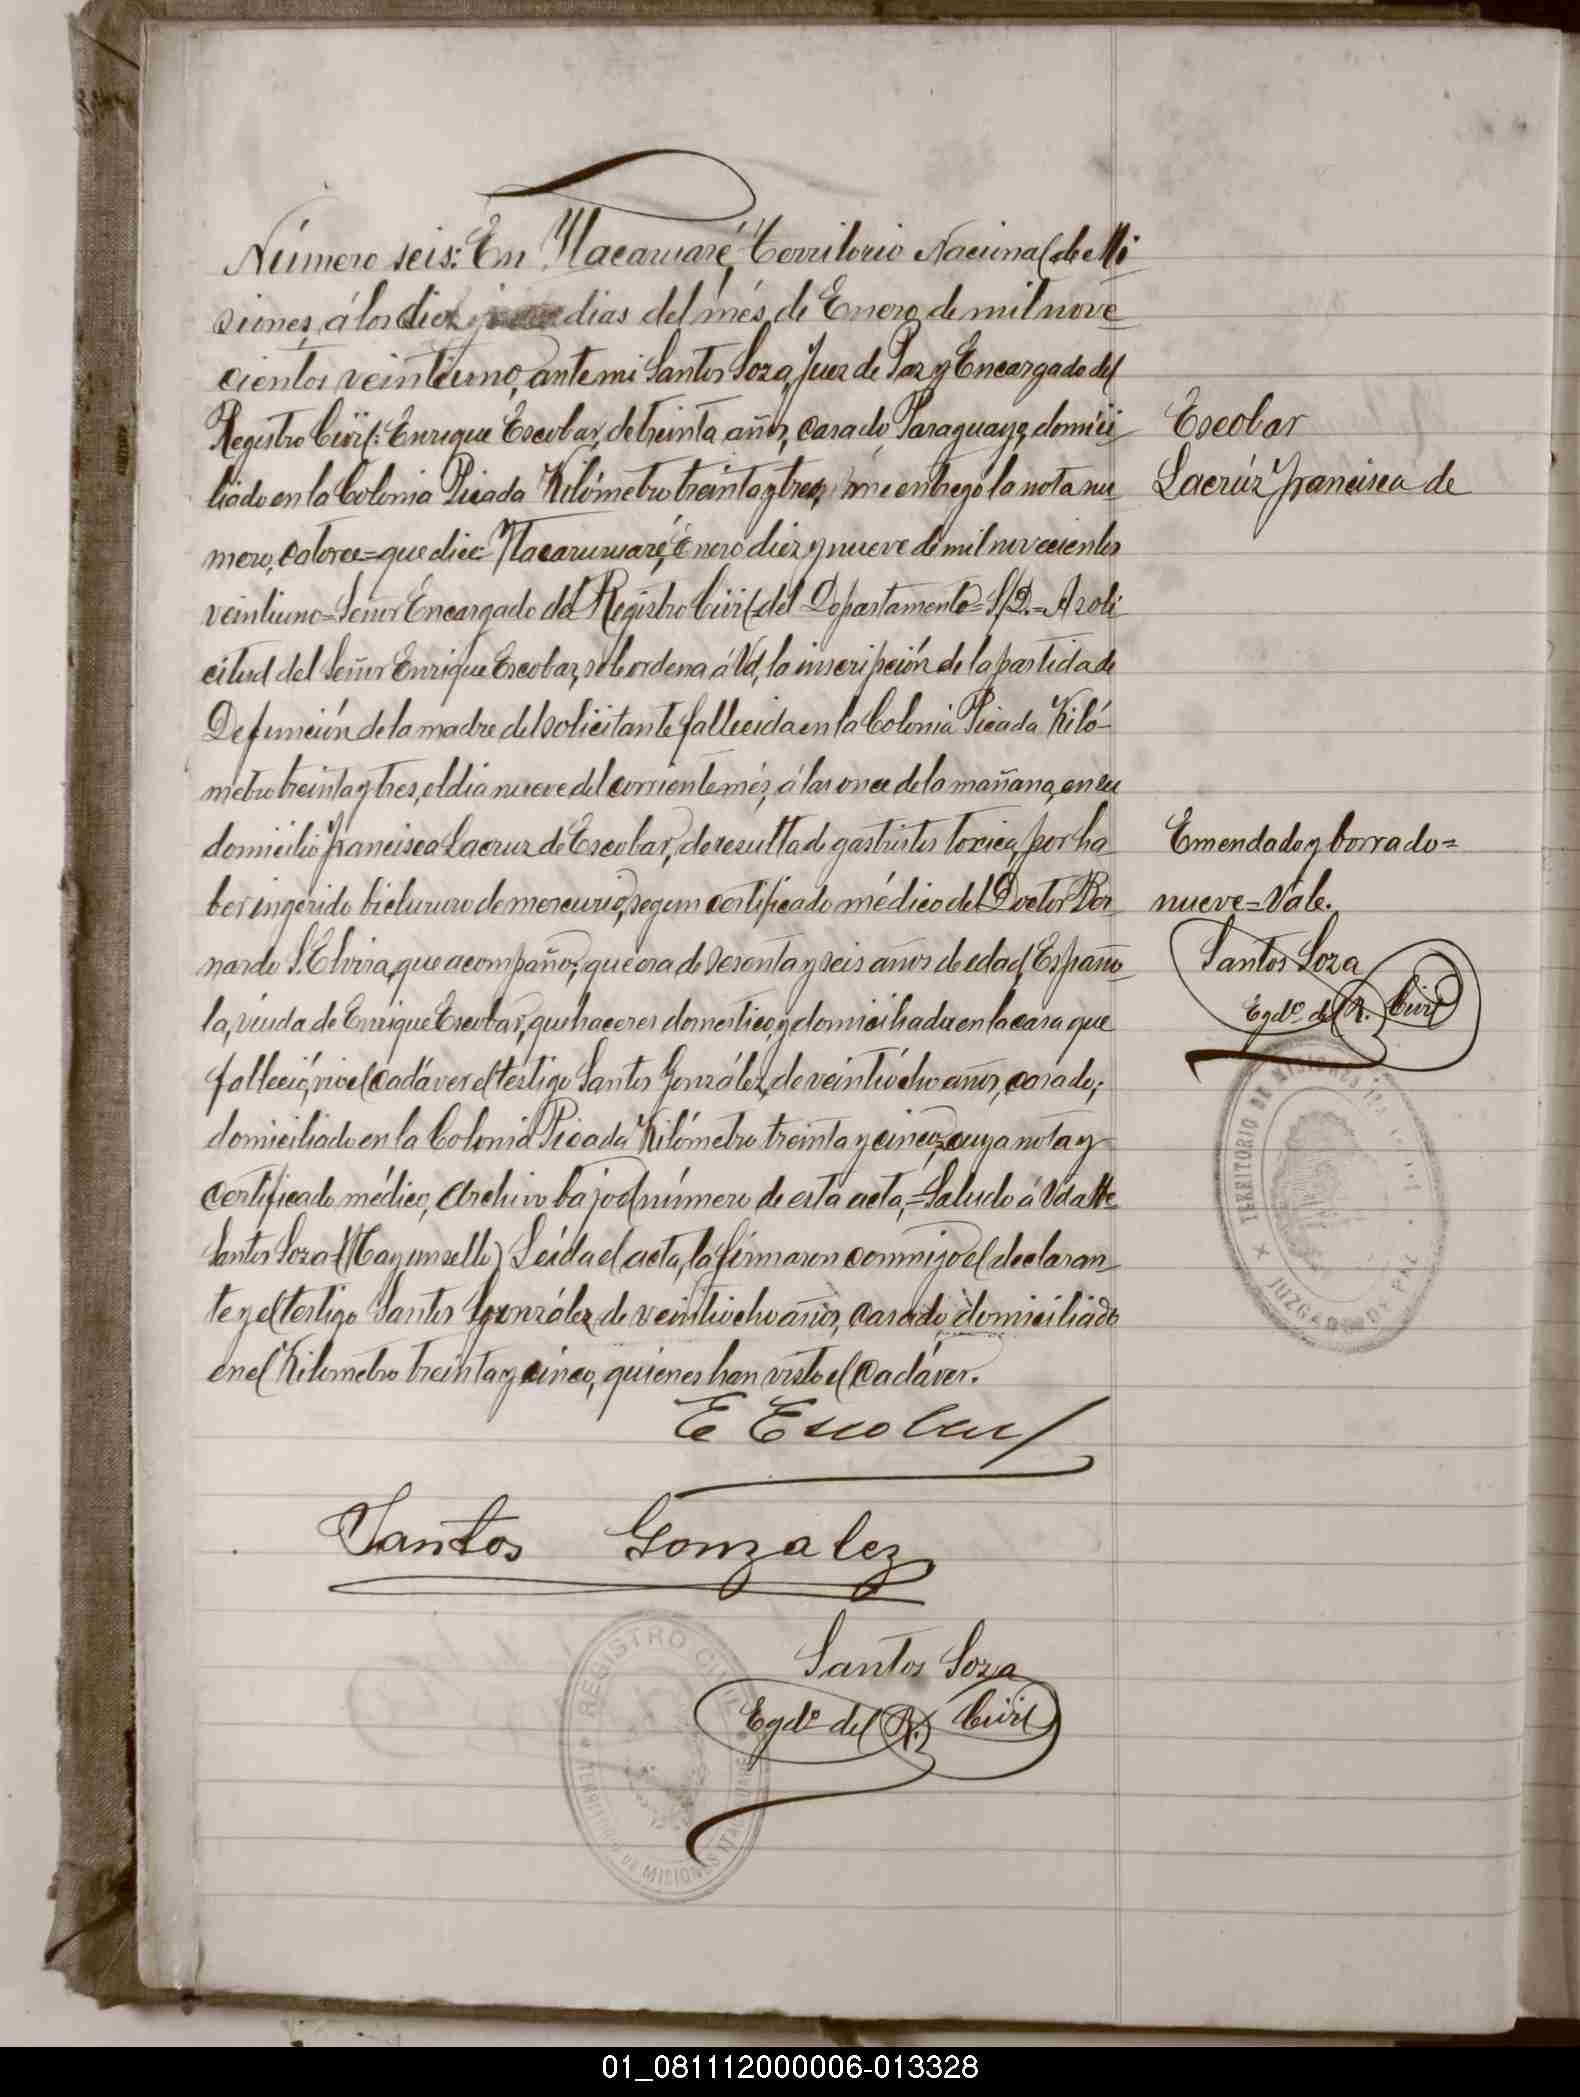 Número seis: En Itacaruaré, Territorio Nacional de Mi
siones, á los diez y dias del més de Enero de mil nove
cientos veintiuno, ante mi Santos Soza, Juez de Paz y Encargado del
Registro Civil: Enrique Escobar, de treinta años, casado, Paraguayo, domici
liado en la Colonia Picada Kilómetro treinta y tres, me entregó la nota nu
mero, catorce=que dice: Itacaruaré, Enero diez y nueve de mil novecientos
veintiuno=Señor Encargado del Registro Civil del Departamento=S/D.=A soli
citud del Señor Enrique Escobar, se le ordena á Vd, la inscripción de la partida de
Defunción de la madre del solicitante fallecida en la Colonia Picada Kiló-
metro treinta y tres, el dia nueve del corriente més, á las once de la mañana, en su
domicilio Francisca Lacruz de Escobar, de resulta de gastritis toxica, por ha
ber ingerido biclururo de mercurio, segun certificado médico del Doctor Ber
nardo S. Elvira, que acompaño; que era de sesenta y seis años de edad, Españo
la, viuda de Enrique Escobar, quehaceres domestico, y domiciliada en la casa que
falleció, vió el cadáver el testigo Santos González, de veintiocho años, casado,
domiciliado en la Colonia Picada Kilómetro treinta y cinco, cuya nota y
certificado médico, archivo bajo el número de esta acta,=Saludo á Vd atte
Santos Soza=(Hay un sello) Leida el acta, la firmaron conmigo el declaran
te y el testigo Santos González de veintiocho años, casado, domiciliado
en el Kilometro treinta y cinco, quienes han visto el cadáver.
E Escobar
Santos Gonzalez
Santos Soza
Egdo. del R. Civil
REGISTRO CIVIL
TERRITORIO DE MISIONES
Escobar
Lacrúz Francisca de
Emendado y borrado=
nueve=Vale.
Santos Soza
Egdo. del R. Civil
TERRITORIO DE MISIONES
JUZGADO DE PAZ
01_081112000006-013328